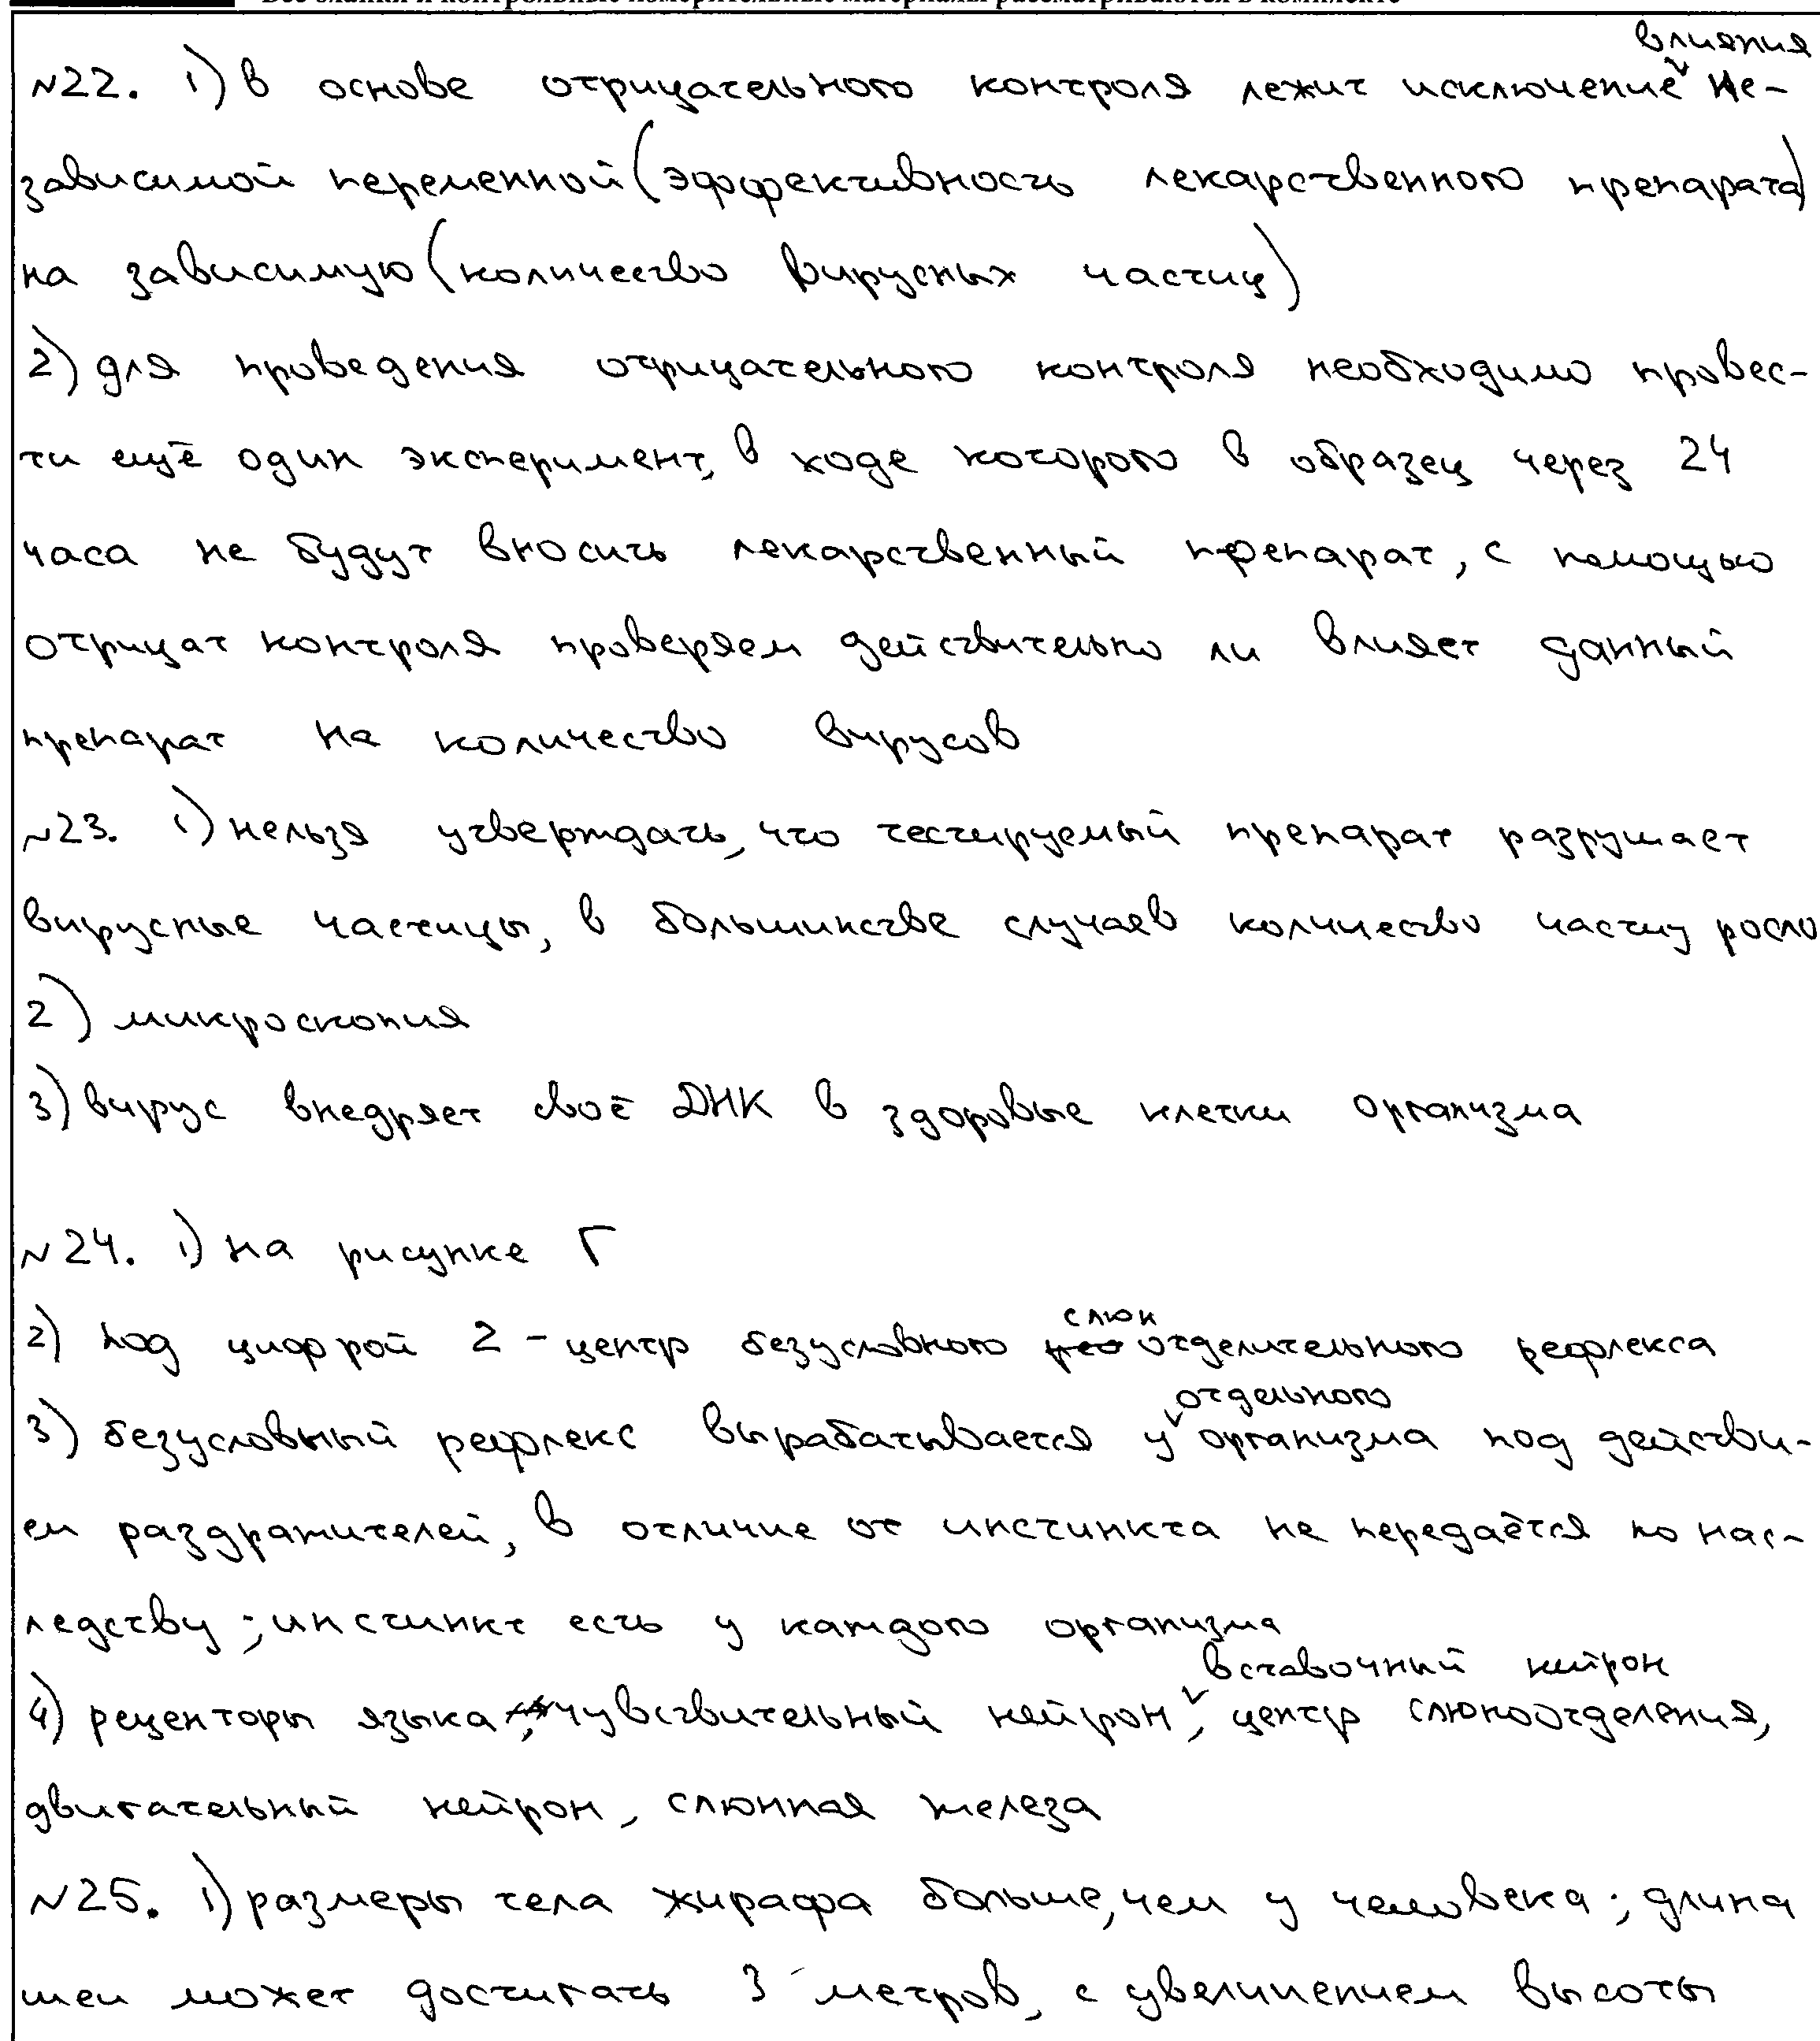 Все бланки и контрольные измерительные материалы рассматриваются в комплекте
влияния
№22. 1) в основе отрицательного контроля лежит исключение не-
зависимой переменной (эффективность лекарственного препарата)
на зависимую (количество вирусных частиц)
2) для проведения отрицательного контроля необходимо провес-
ти ещё один эксперимент, в ходе которого в образец через 24
часа не будут вносить лекарственный препарат, с помощью
отрицат контроля проверяем действительно ли влияет данный
препарат на количество вирусов
№23. 1) нельзя утверждать, что тестируемый препарат разрушает
вирусные частицы, в большинстве случаев количество частиц росло
2) микроскопия
3) вирус внедряет своё ДНК в здоровые клетки организма
№24. 1) на рисунке Г
слюн
2) под цифрой 2 - центр безусловного отделительного рефлекса
отдельного
3) безусловный рефлекс вырабатывается у организма под действи-
ем раздражителей, в отличие от инстинкта не передаётся по нас-
ледству; инстинкт есть у каждого организма
вставочный нейрон
4) рецепторы языка, чувствительный нейрон, центр слюноотделения,
двигательный нейрон, слюнная железа
№25. 1) размеры тела жирафа больше, чем у человека; длина
шеи может достигать 3 метров, с увеличением высоты